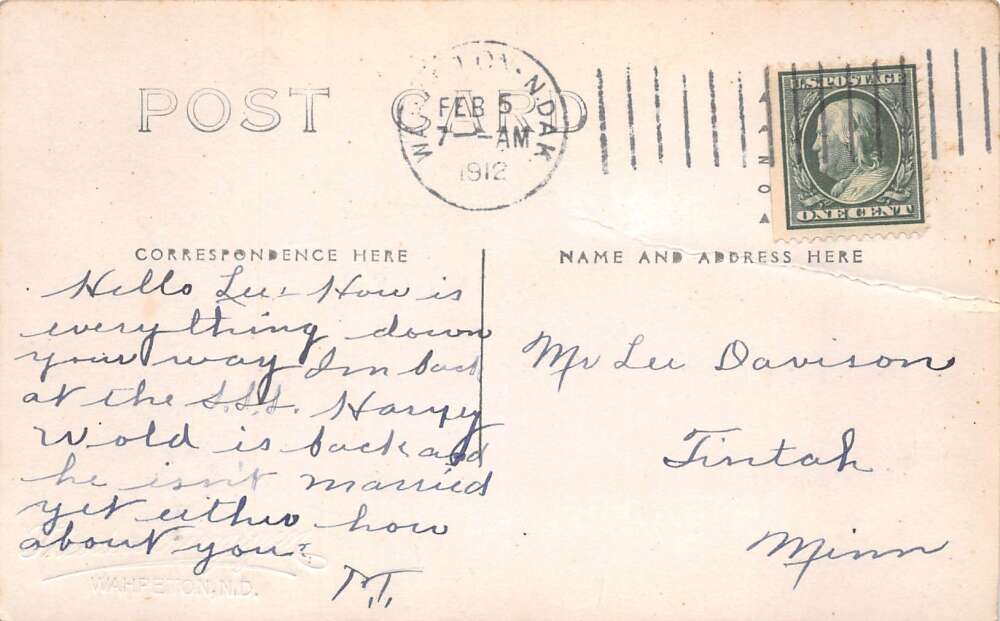 POST CARD
WAHPETON, N.DAK.
FEB 5
7-AM
1912
U.S. POSTAGE
ONE CENT
CORRESPONDENCE HERE
NAME AND ADDRESS HERE
Hello Lee: How is
everything down
your way Im back
at the S.S.S. Harvey
Wold is back and
he isn't married
yet either how
about you?
M.T.
Mr Lee Davison
Tintah
Minn
WAHPETON, N.D.